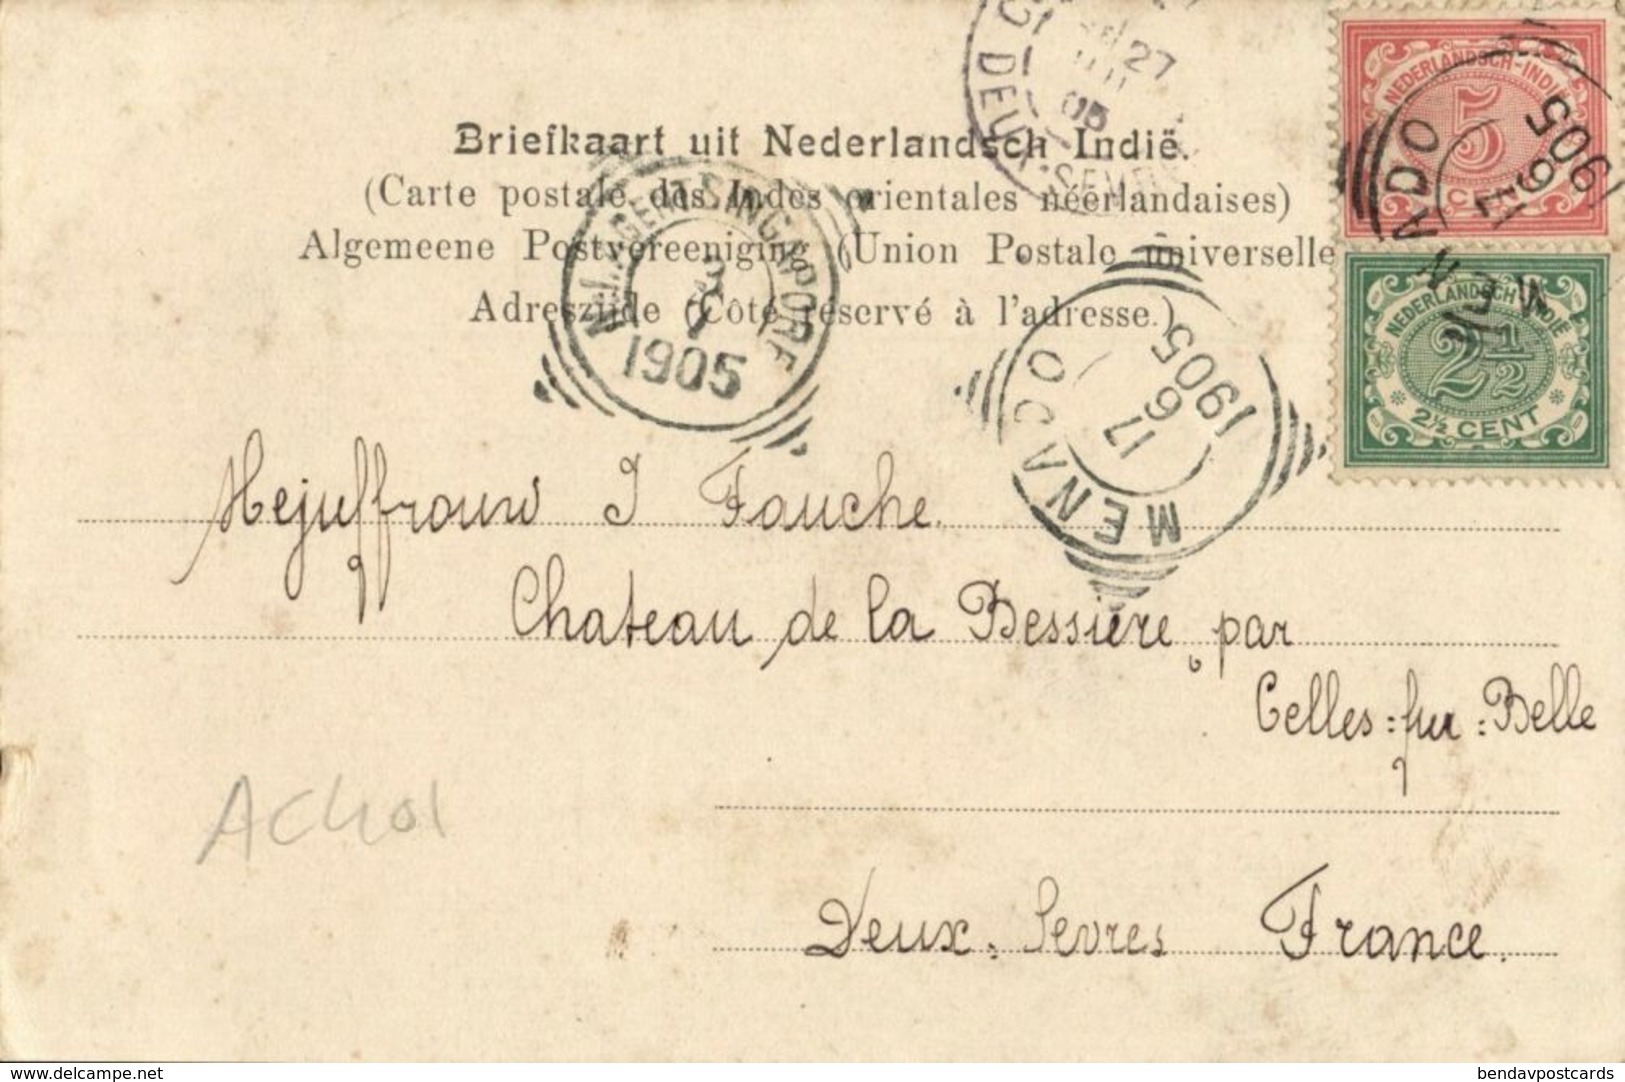 Briefkaart uit Nederlandsch Indië.
(Carte postale des Indes orientales néerlandaises)
Algemeene Postvereeniging (Union Postale universelle
Adreszijde (Côté réservé à l'adresse.)
DEUX-SEVRES
27
05
N.I. AGENT SINGAPORE
1905
MENADO
17 6
1905
MENADO
17 6
1905
NEDERLANDSCH-INDIË
5
CENT
NEDERLANDSCH INDIË
2½
2½ CENT
Mejuffrouw J Fauche.
Chateau de la Bessière par
Celles-sur-Belle
Deux-Sevres France.
www.delcampe.net
bendavpostcards